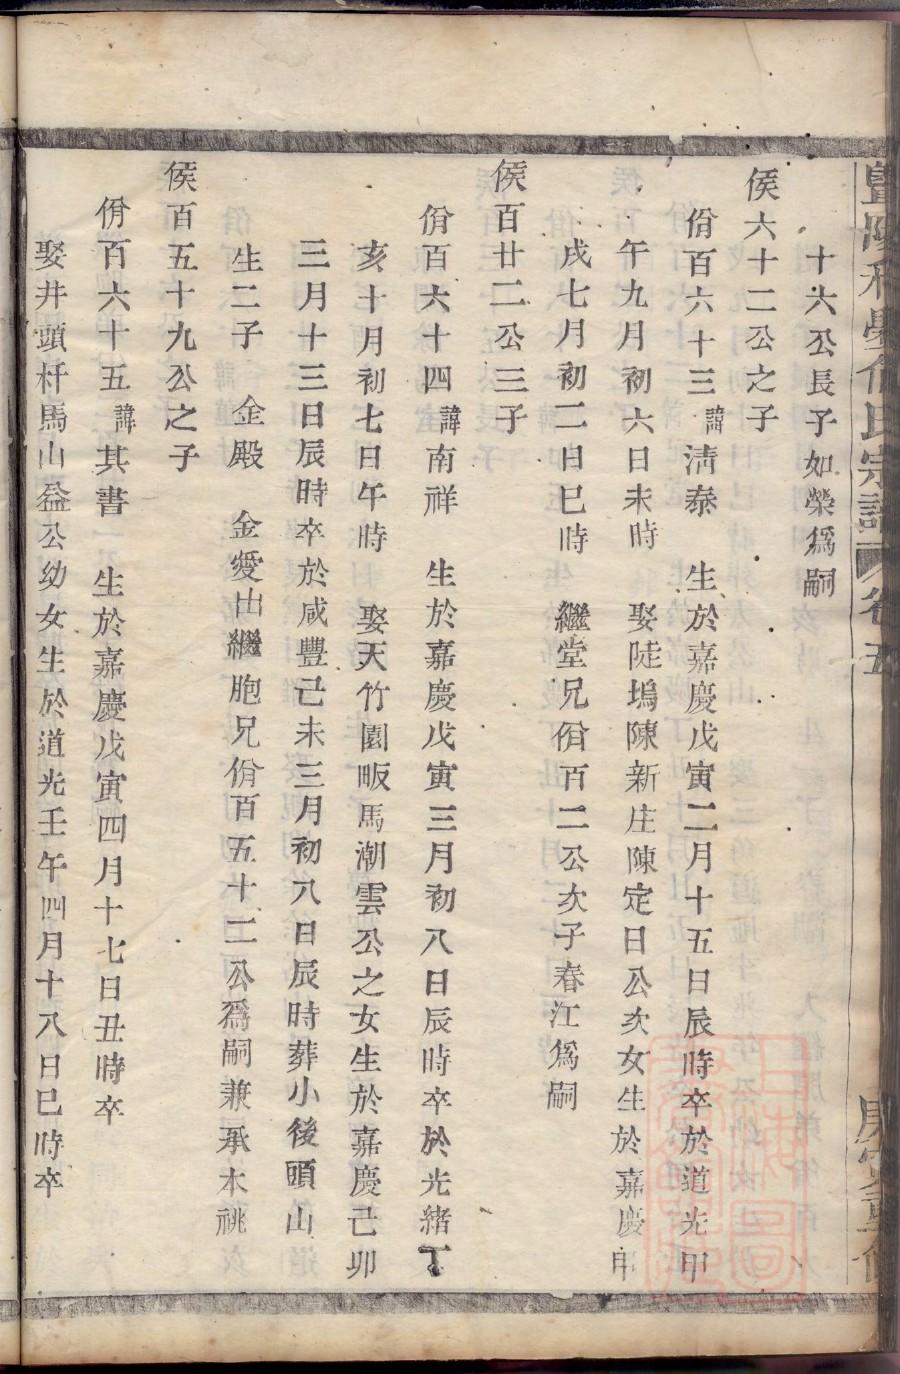 宗譜 卷五
十六公長子如榮爲嗣
侯六十二公之子
佾百六十三 諱淸泰 生於嘉慶戊寅二月十五日辰時卒於道光甲
午九月初六日未時 娶陡塢陳新庄陳定日公次女生於嘉慶甲
戌七月初二日巳時 繼堂兄佾百二公次子春江爲嗣
侯百廿二公三子
佾百六十四 諱南祥 生於嘉慶戊寅三月初八日辰時卒於光緒丁
亥十月初七日午時 娶天竹園畈馬潮雲公之女生於嘉慶己卯
三月十三日辰時卒於咸豐己未三月初八日辰時葬小後頭山
生二子 金殿 金愛出繼胞兄佾百五十二公爲嗣兼承本祧
侯百五十九公之子
佾百六十五 諱其書 生於嘉慶戊寅四月十七日丑時卒
娶井頭杆馬山益公幼女生於道光壬午四月十八日巳時卒